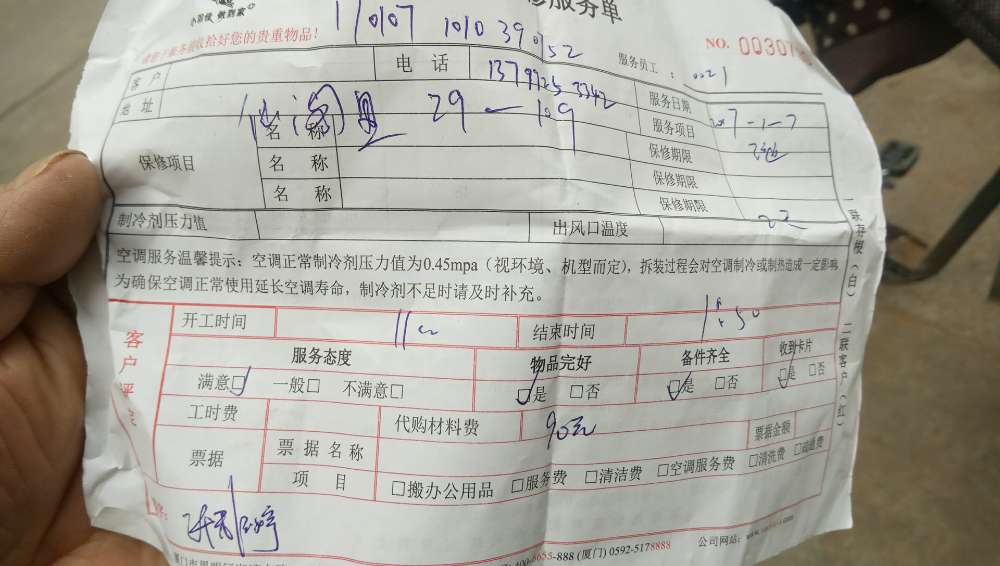 修服务单
小羽佳 做到家
1701071010390752
收拾好您的贵重物品!
NO. 00307
服务员工: 0021
客户 电话 服务日期
13799253342
地址 29-109 服务项目 2017-1-7
保修项目 名称 保修期限
名称 保修期限
名称 保修期限
制冷剂压力值 出风口温度
空调服务温馨提示:空调正常制冷剂压力值为0.45mpa(视环境、机型而定),拆装过程会对空调制冷或制热造成一定影响
为确保空调正常使用延长空调寿命,制冷剂不足时请及时补充。
一联存根(白) 二联客户(红)
客户评定
开工时间 结束时间 11:50
服务态度 物品完好 备件齐全 收到卡片
满意☑ 一般□ 不满意□ ☑是 □否 ☑是 □否 ☑是 □否
工时费 代购材料费 90元
票据 票据名称 票据金额
项目 □搬办公用品 □服务费 □清洁费 □空调服务费 □清洗费 □疏通费
-888 (厦门) 0592-5178888 公司网站: